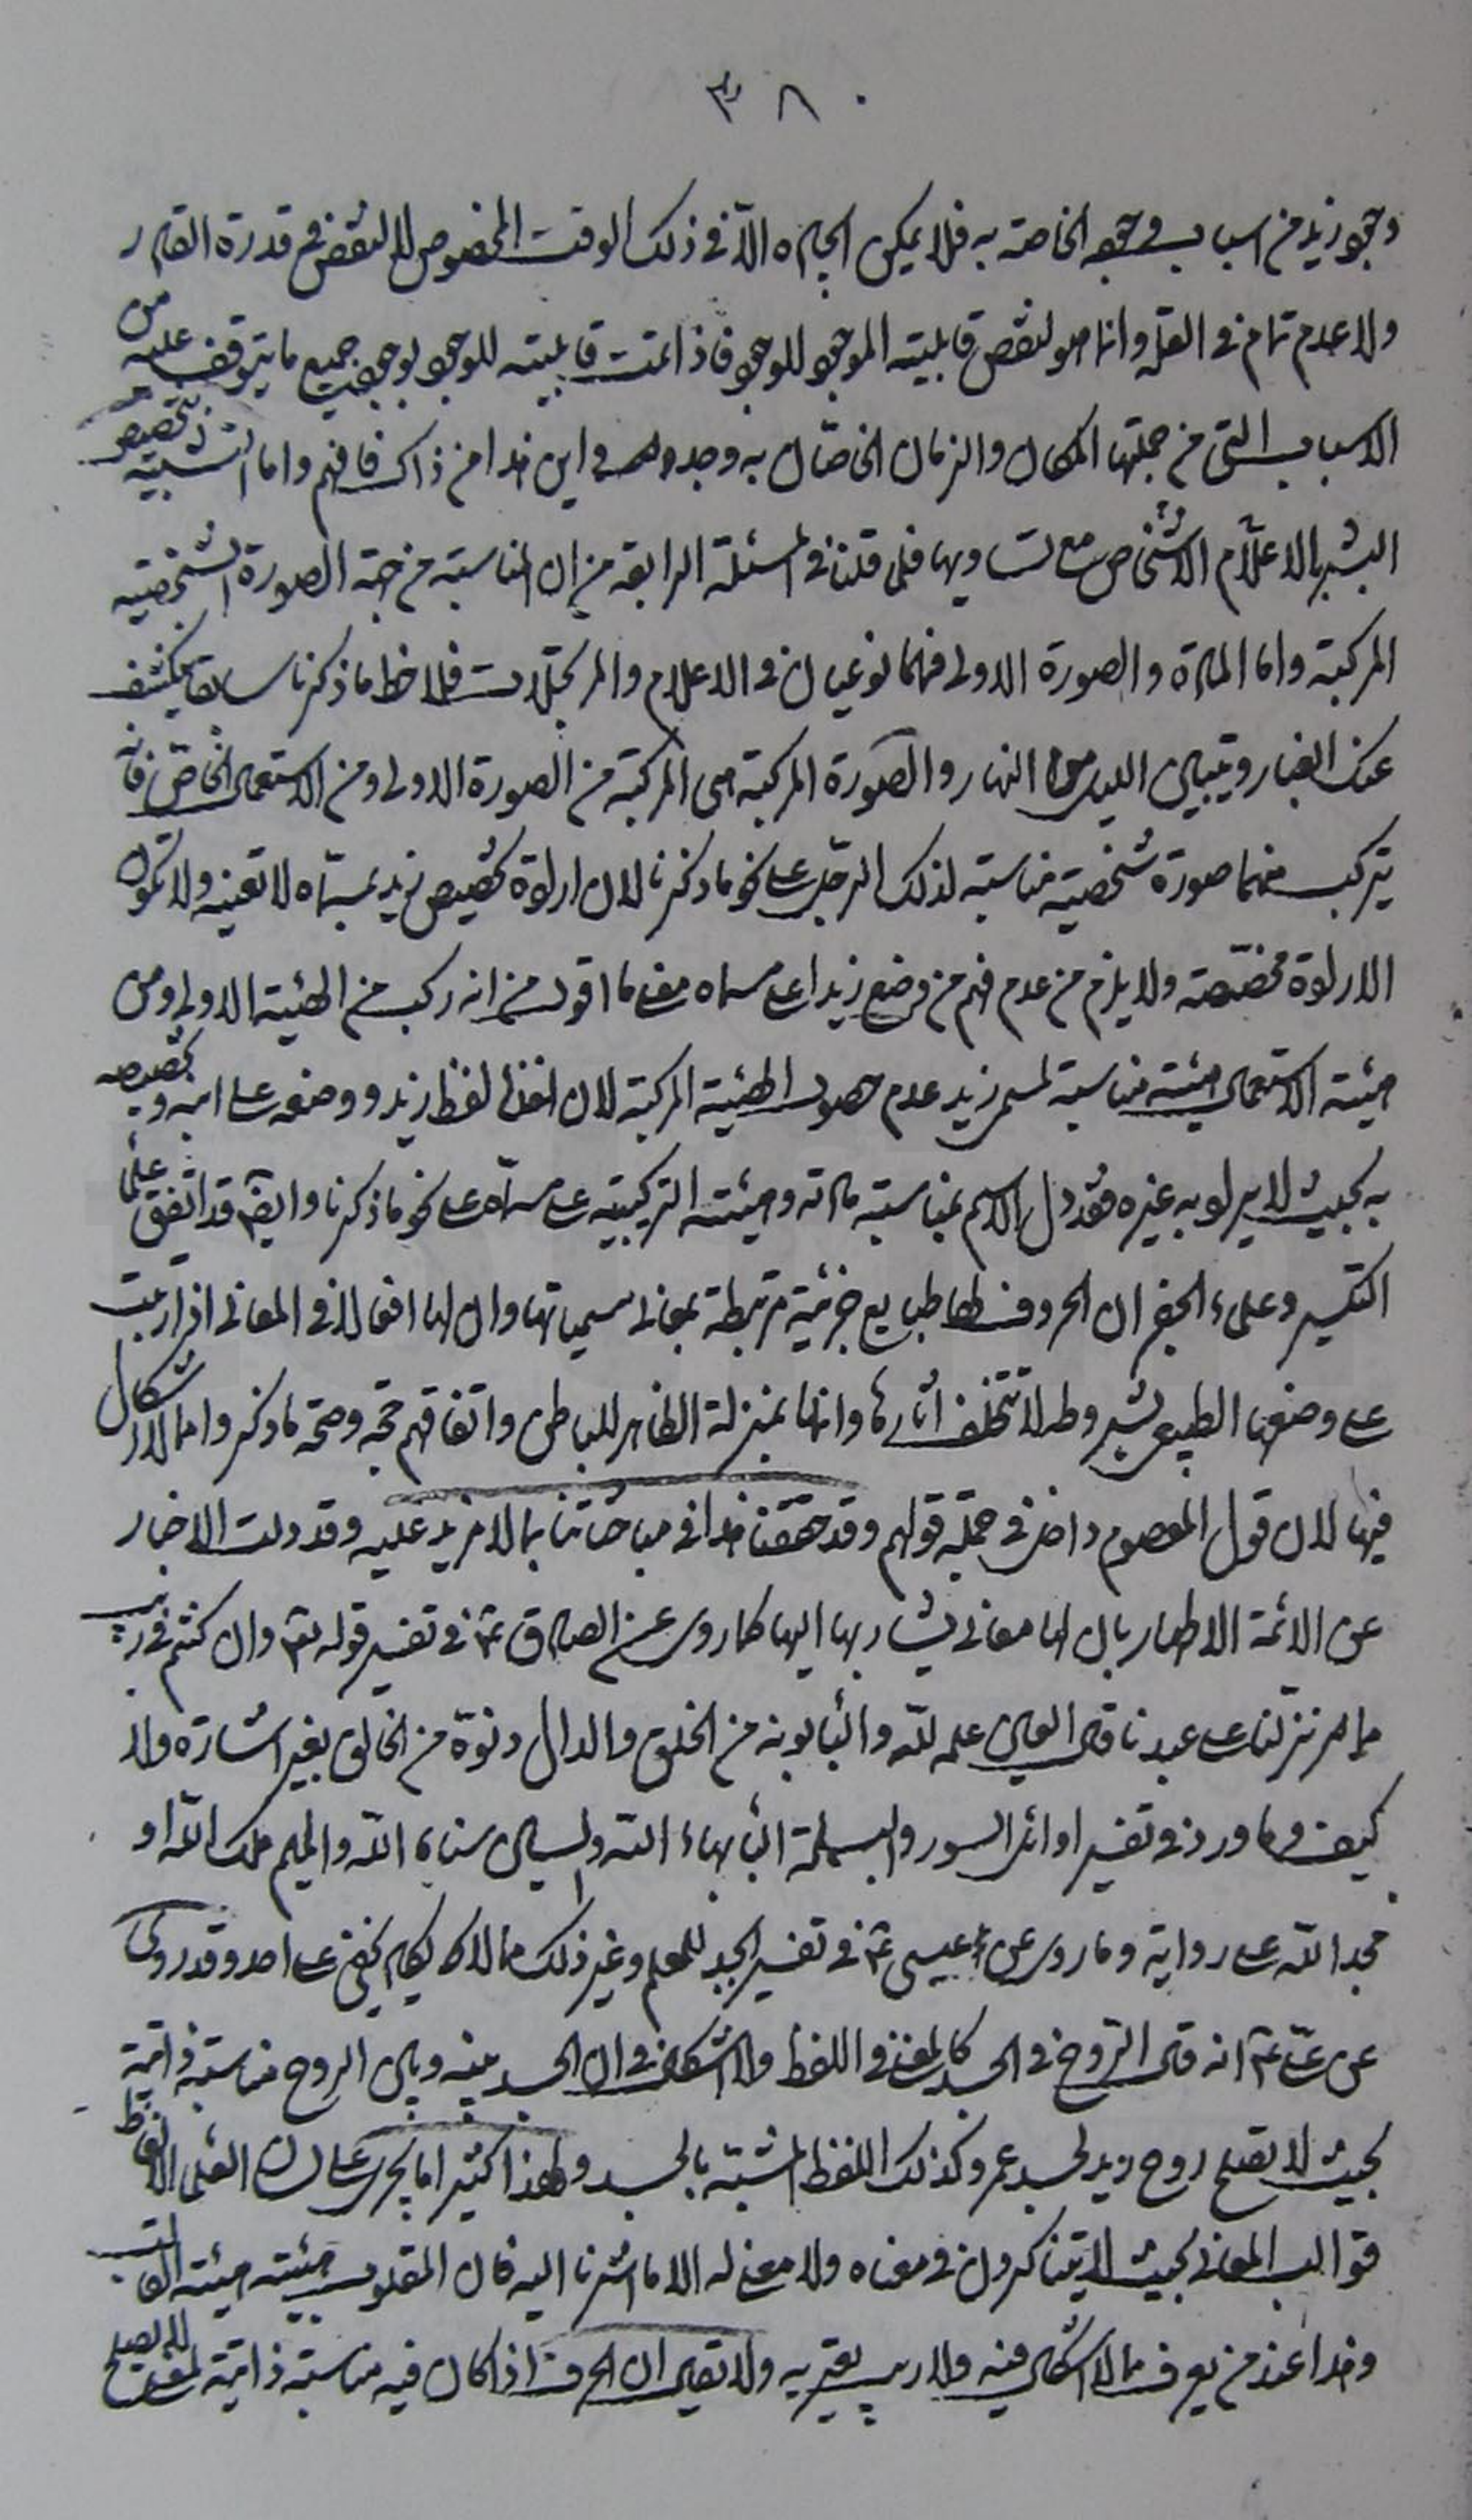 ٣٨٠
وجود زيد من اسباب وجوده الخاصة به فلا يمكن ايجاده الّا في ذلك الوقت المخصوص لا لنقص في قدرة القادر
ولا عدم تمام في العلة وانما هو لنقص قابلية الموجود للوجود فاذا تمت قابليته للوجود بوجود جميع ما يتوقف عليه من
الاسباب التي من جملتها المكان والزمان الخاصّان به وجد واين هذا من ذاك فافهم واما التشبيه بتخصيص
البشر بالاعلام الاشخاص مع تساويها فلما قلنا في المسئلة الرابعة من ان المناسبة من جهة الصورة الشخصية
المركبة واما المادة والصورة الاولى فهما نوعيان في الاعلام والمرتجلات فلاحظ ما ذكرنا سابقا ينكشف
عنك الغبار ويتبين الليل من النهار والصورة المركبة هي المركبة من الصورة الاولى ومن الاستعمال الخاص فانه
يتركب منهما صورة شخصية مناسبة لذلك الرجل على نحو ما ذكرنا لان ارادة تخصيص زيد بمسمّاه لا تعينه ولا تكون
الارادة مخصّصة ولا يلزم من عدم فهم من وضع زيدا على مسماه معنى ما اقول من انه ركب من الهيئة الاولى ومن
هيئة الاستعمال هيئة مناسبة لمسمى زيد عدم حصول الهيئة المركبة لان اخذ لفظ زيد ووضعه على ابنه وتخصيصه
به بحيث لا يراد به غيره فقد دل الاسم بمناسبة مادته وهيئته التركيبية على مسمّاه على نحو ما ذكرنا وايضا قد اتفق علماء
التكسير وعلماء الجفر ان الحروف لها طبايع جزئية مرتبطة بمعاني مسمياتها وان لها افعالا في المعاني اذا رتبت
على وضعها الطبيعي بشروطه لا تتخلف اثارها وانها بمنزلة الظاهر للباطن واتفاقهم حجة وصحة ما ذكروا مما لا اشكال
فيها لان قول المعصوم داخل في جملة قولهم وقد حققنا هذا في مباحثاتنا بما لا مزيد عليه وقد دلت الاخبار
عن الائمة الاطهار بان لها معاني يشار بها اليها كما روي عن الصادق ع في تفسير قوله تع وان كنتم في ريب
مما نزلنا على عبدنا قال العين علمه لله والباء بونه من الخلق والدال دنوّه من الخالق بغير اشارة ولا
كيف وما ورد في تفسير اوائل السور والبسملة الباء بهاء الله والسين سناء الله والميم ملك الله او
مجد الله على رواية وما روي عن عيسى ع في تفسير ابجد للمعلم وغير ذلك مما لا يكاد يخفى على احد وقد روي
عن علي ع انه قال الروح في الجسد كالمعنى في اللفظ ولا اشكال في ان الجسد بينه وبين الروح مناسبة ذاتية
بحيث لا تصلح روح زيد لجسد عمرو وكذلك اللفظ المشبّه بالجسد ولهذا كثيرا ما يجري على لسان العلماء الالفاظ
قوالب المعاني بحيث لا يتناكرون في معناه ولا معنى له الا ما اشرنا اليه فان المقلوب هيئته هيئة القالب
وهذا عند من يعرف مما لا اشكال فيه ولا ريب يعتريه ولا تقل ان الحرف اذا كان فيه مناسبة ذاتية لمعنى لا يصلح